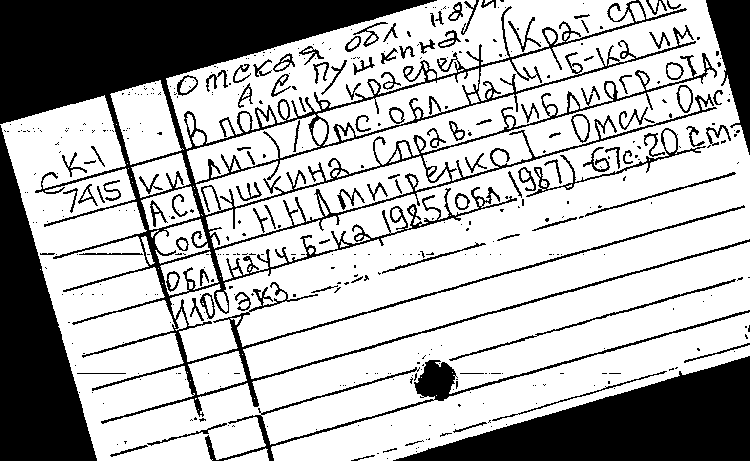 Омская обл. науч.
А.С. Пушкина.
В помощь краеведу: (Крат. спис
ки лит.) / Омс. обл. науч. б-ка им.
А.С. Пушкина. Справ.-библиогр. отд;
[Сост.: Н.Н. Дмитренко]. - Омск: Омс.
обл. науч. б-ка, 1985 (обл. 1987) - 67с; 20 см.
1100 экз.
СК-1
7415